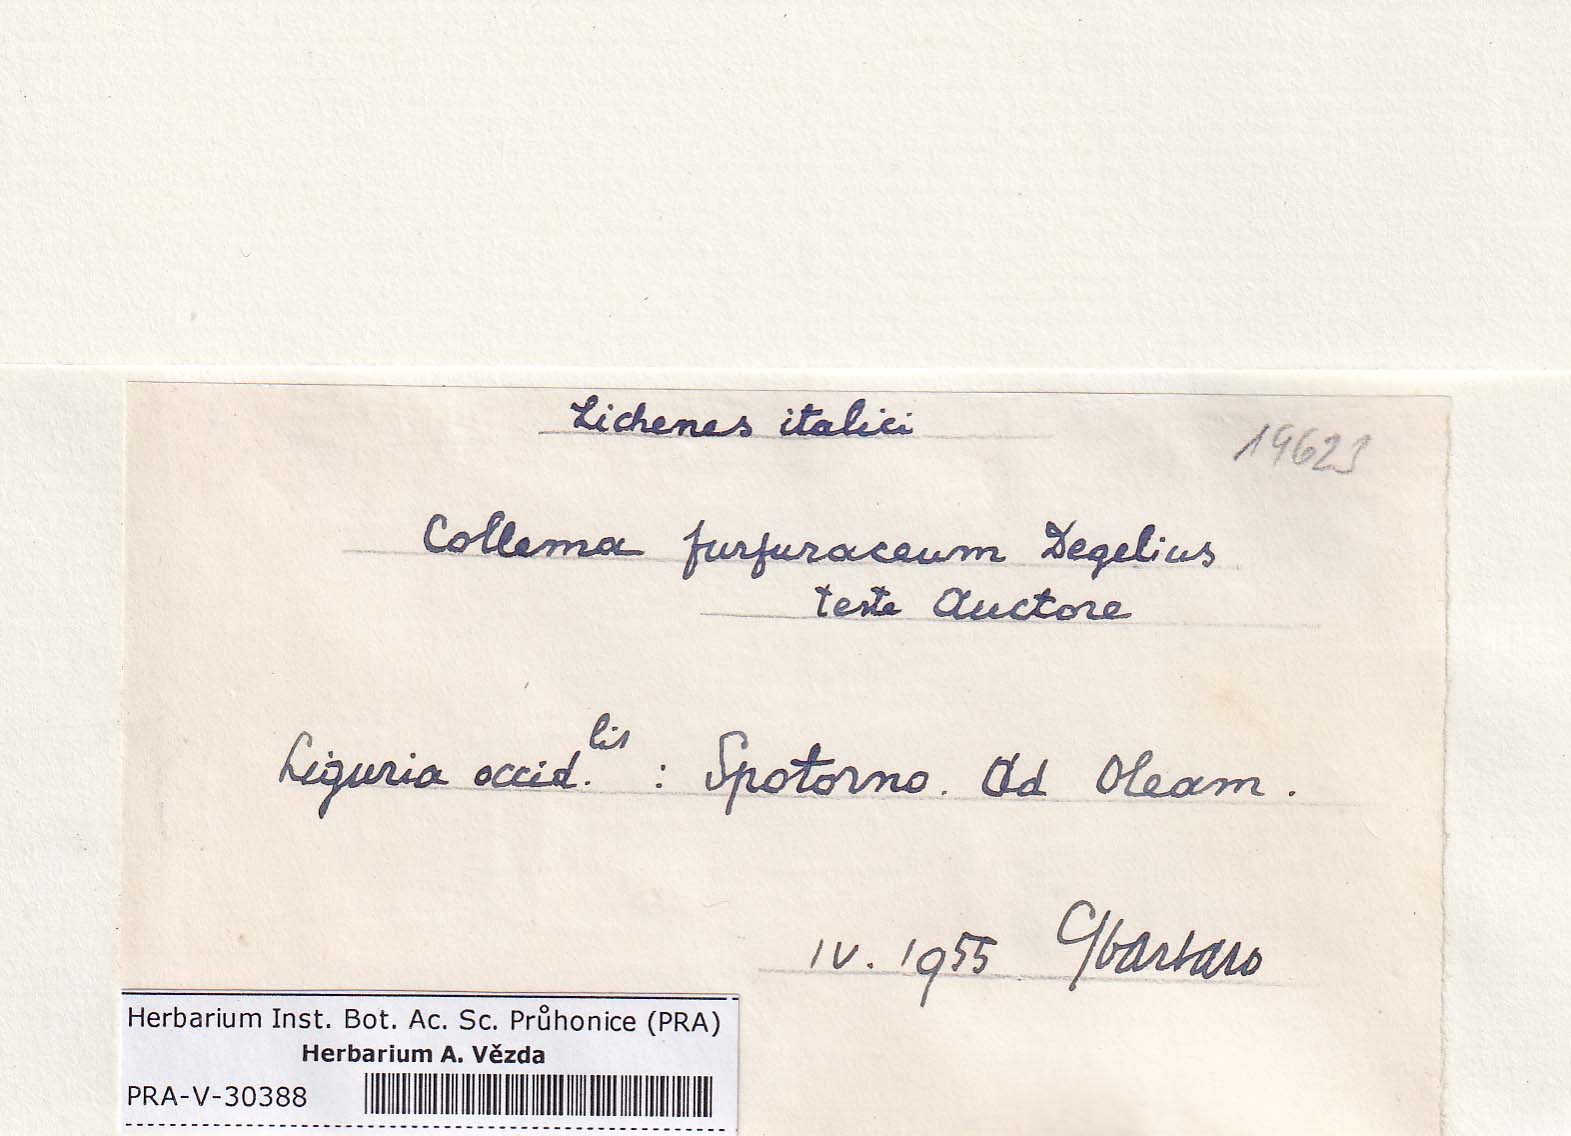 Lichenes italici
19623
Collema furfuraceum Degelius
teste Auctore
Liguria occid.lis : Spotorno. Ad Oleam.
IV. 1955 Sbarbaro
Herbarium Inst. Bot. Ac. Sc. Průhonice (PRA)
Herbarium A. Vězda
PRA-V-30388